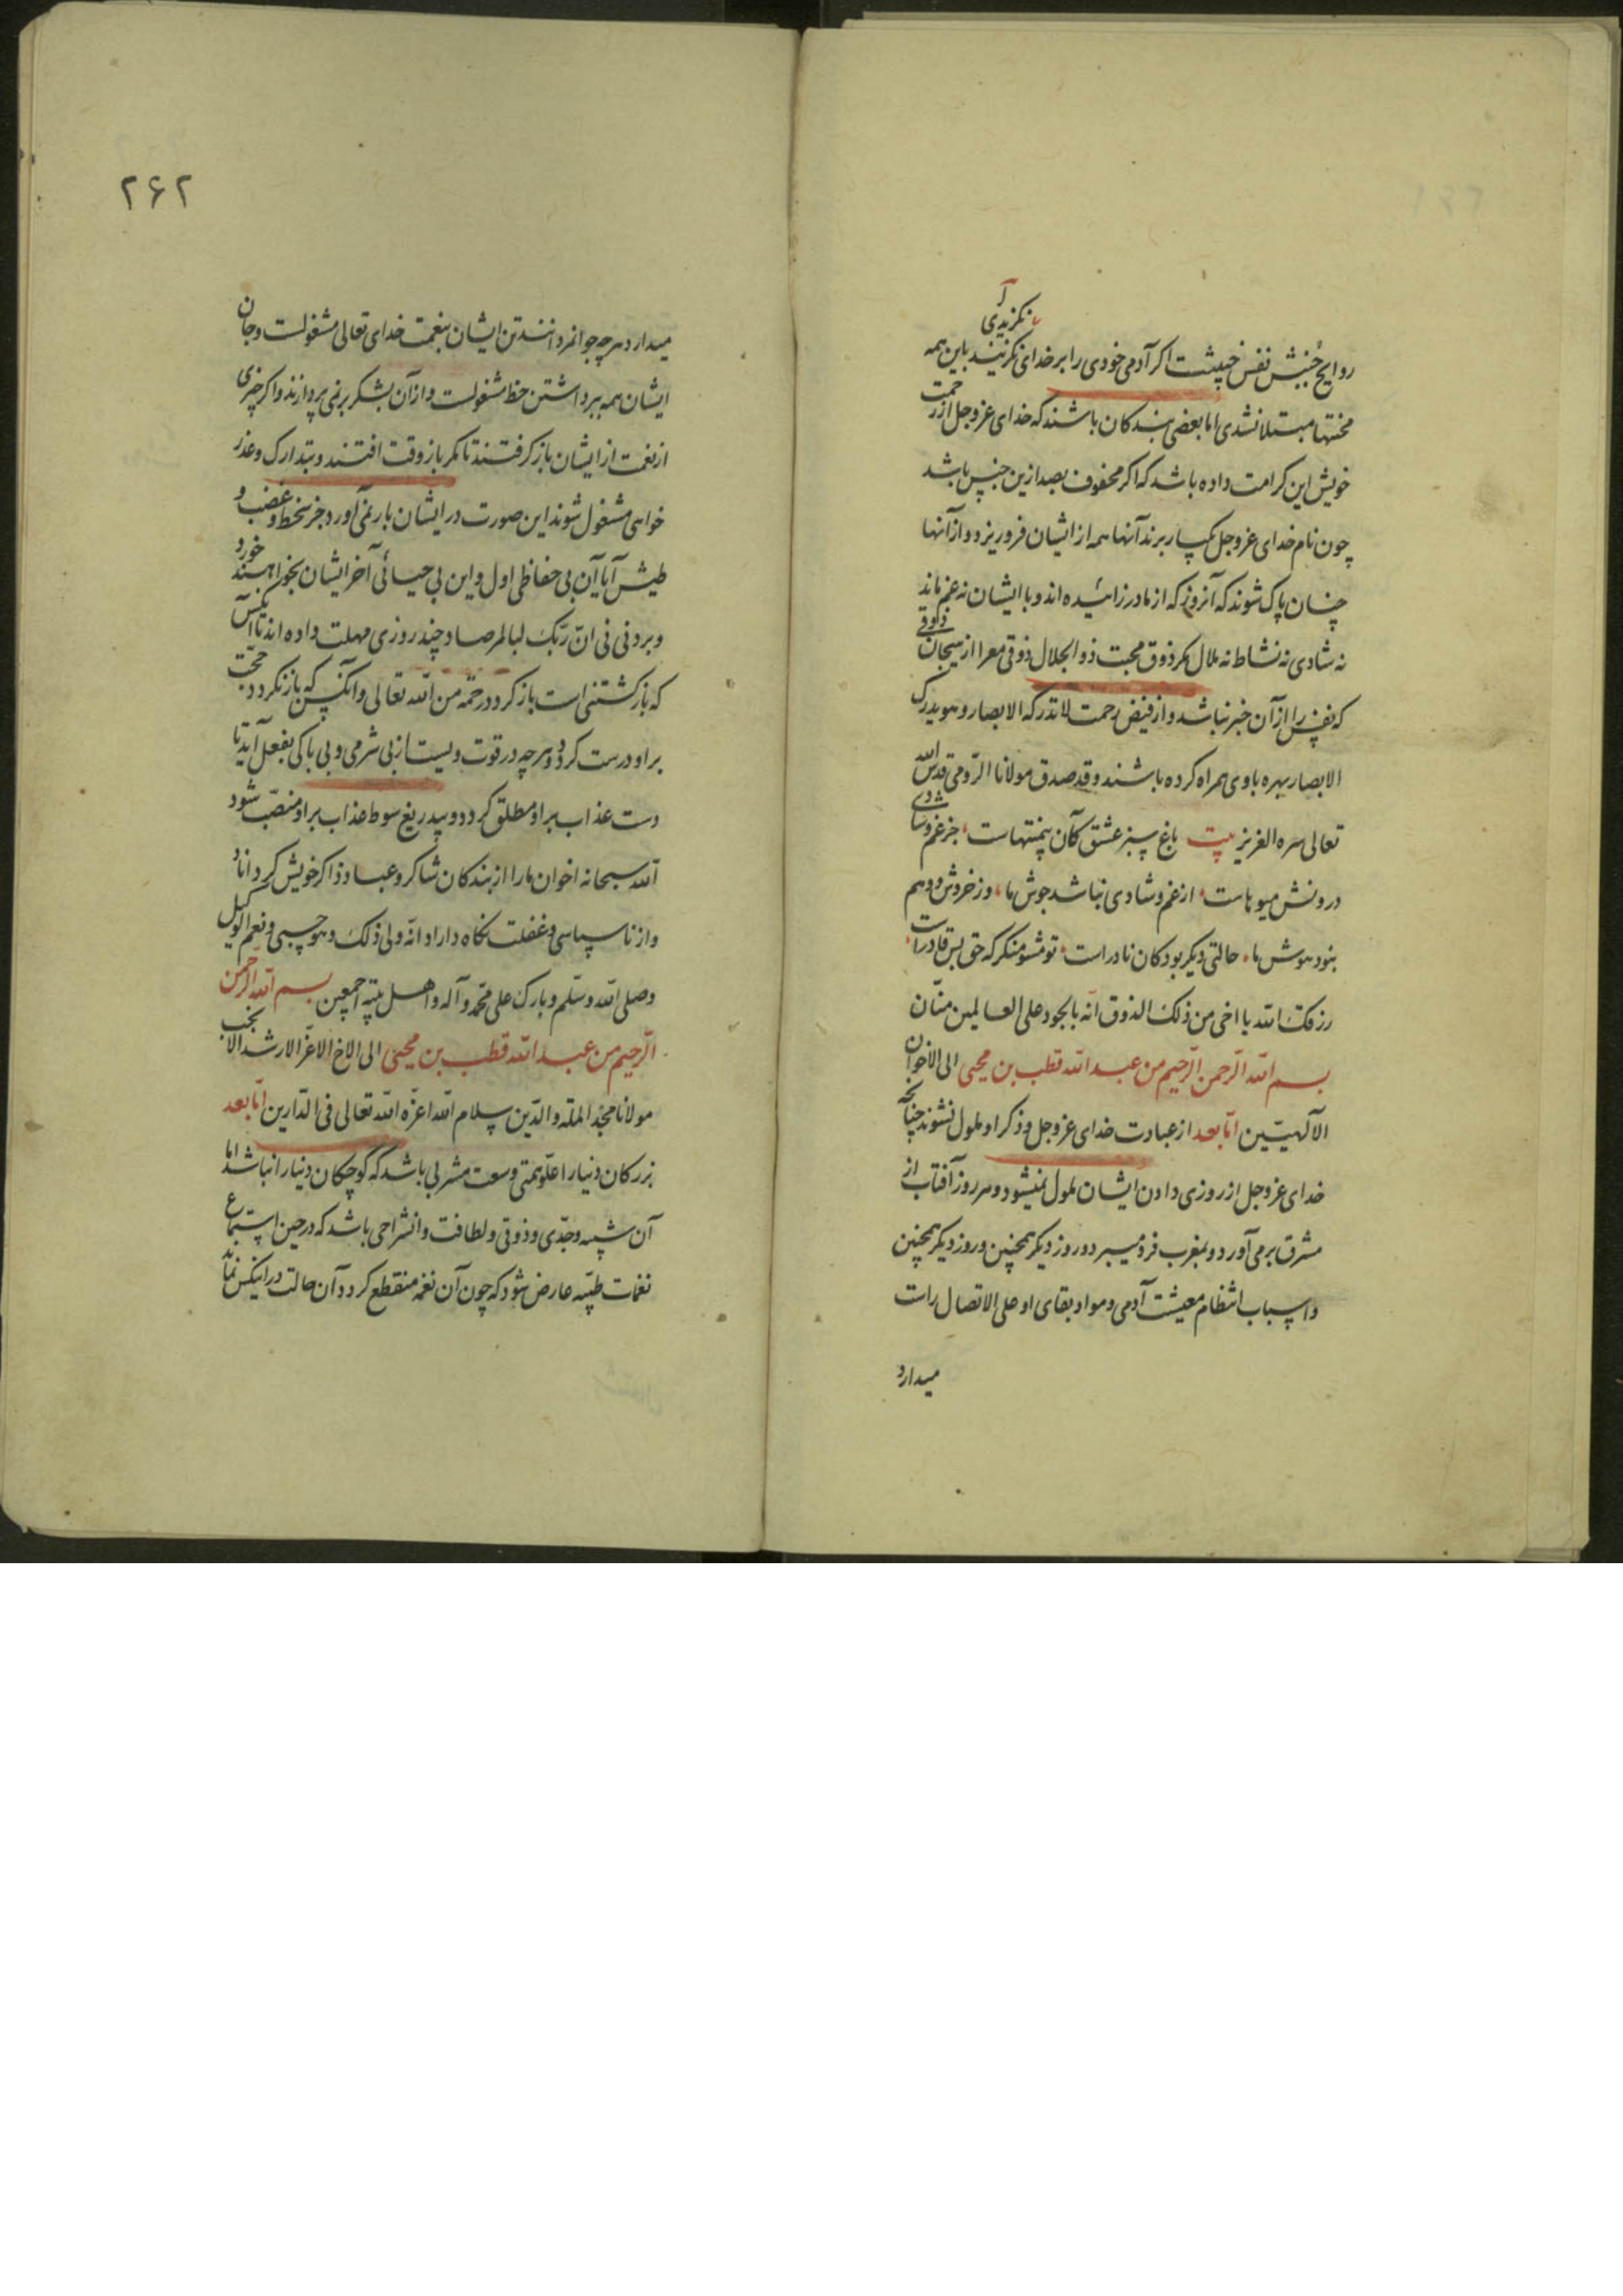 نگزیدی
روایح جنبش نفس خبیثست اکر آدمی خودی را بر خدای نگزیند باین همه
محنتها مبتلا نشدی اما بعضی بندکان باشند که خدای عزوجل از رحمت
خویش این کرامت داده باشد که اکر محفوف بصد ازین جنس باشد
چون نام خدای عزوجل یکبار برند آنها همه از ایشان فرو ریزد و از آنها
چنان پاک شوند که آنروز که از مادر زائیده اند و با ایشان نه غم ماند
نه شادی نه نشاط نه ملال مکر ذوق محبت ذو الجلال ذوقی معرا از هیجان
که نفس را از آن خبر نباشد و از فیض رحمت لا تدرکه الابصار و هو یدرک
الابصار بهره با وی همراه کرده باشند و قد صدق مولانا الرومی قدس الله
تعالی سره العزیز بیت باغ سبز عشق کان بیمنتهاست جز غم و شادی
درونش میوهاست از غم و شادی نباشد جوش ما وز خروش و وهم
نبود هوش ما حالتی دیکر بود کان نادراست تو مشو منکر که حق بس قادراست
رزقک الله یا اخی من ذلک الذوق انه بالجود علی العالمین منّان
بسم الله الرحمن الرحیم من عبد الله قطب بن محیی الی الاخوان
الآلهیین اما بعد از عبادت خدای عزوجل و ذکر او ملول نشوند چنانچه
خدای عزوجل از روزی دادن ایشان ملول نمیشود و هر روز آفتاب از
مشرق برمی آورد و بمغرب فرو میبرد و روز دیکر همچنین و روز دیکر همچنین
و اسباب انتظام معیشت آدمی و مواد بقای او علی الاتصال راست
میدارد
۲۶۲
میدارد هرچه جوانمردانند تن ایشان بنعمت خدای تعالی مشغولست و جان
ایشان همه ببرداشتن حظ مشغولست و از آن بشکر بر نمی پردازند و اکر چیزی
از نعمت از ایشان باز کرفتند تا مکر باز وقت افتند و بتدارک و عذر
خواهی مشغول شوند این صورت در ایشان بار نمی آورد جز سخط و غضب و
طیش آیا آن بی حفاظی اول و این بی حیائی آخر ایشان بخواهند خورد
و برد نی نی انّ ربّک لبالمرصاد چند روزی مهلت داده اند تا آنکس
که بازکشتنی است باز کردد رحمة من الله تعالی و آنکس که باز نکردد حجت
بر او درست کردد و هرچه در قوت ویست از بی شرمی و بی باکی بفعل آید تا
دست عذاب بر او مطلق کردد و بیدریغ سوط عذاب بر او منصبّ شود
الله سبحانه اخوان ما را از بندکان شاکر و عباد ذاکر خویش کرداناد
و از ناسپاسی و غفلت نکاه داراد انّه ولی ذلک و هو حسبی و نعم الوکیل
وصلی الله وسلّم وبارک علی محمّد وآله واهل بیته اجمعین بسم الله الرحمن
الرحیم من عبد الله قطب بن محیی الی الاخ الاعزّ الارشد الانجب
مولانا مجد الملة والدین سلام الله اعزه الله تعالی فی الدارین اما بعد
بزرکان دنیا را علو همتی و سعت مشربی باشد که کوچکان دنیا را نباشد اما
آن شبیه وجدی و ذوقی و لطافت و انشراحی باشد که در حین استماع
نغمات طیبه عارض شود که چون آن نغمه منقطع کردد آن حالت در اینکس نماند